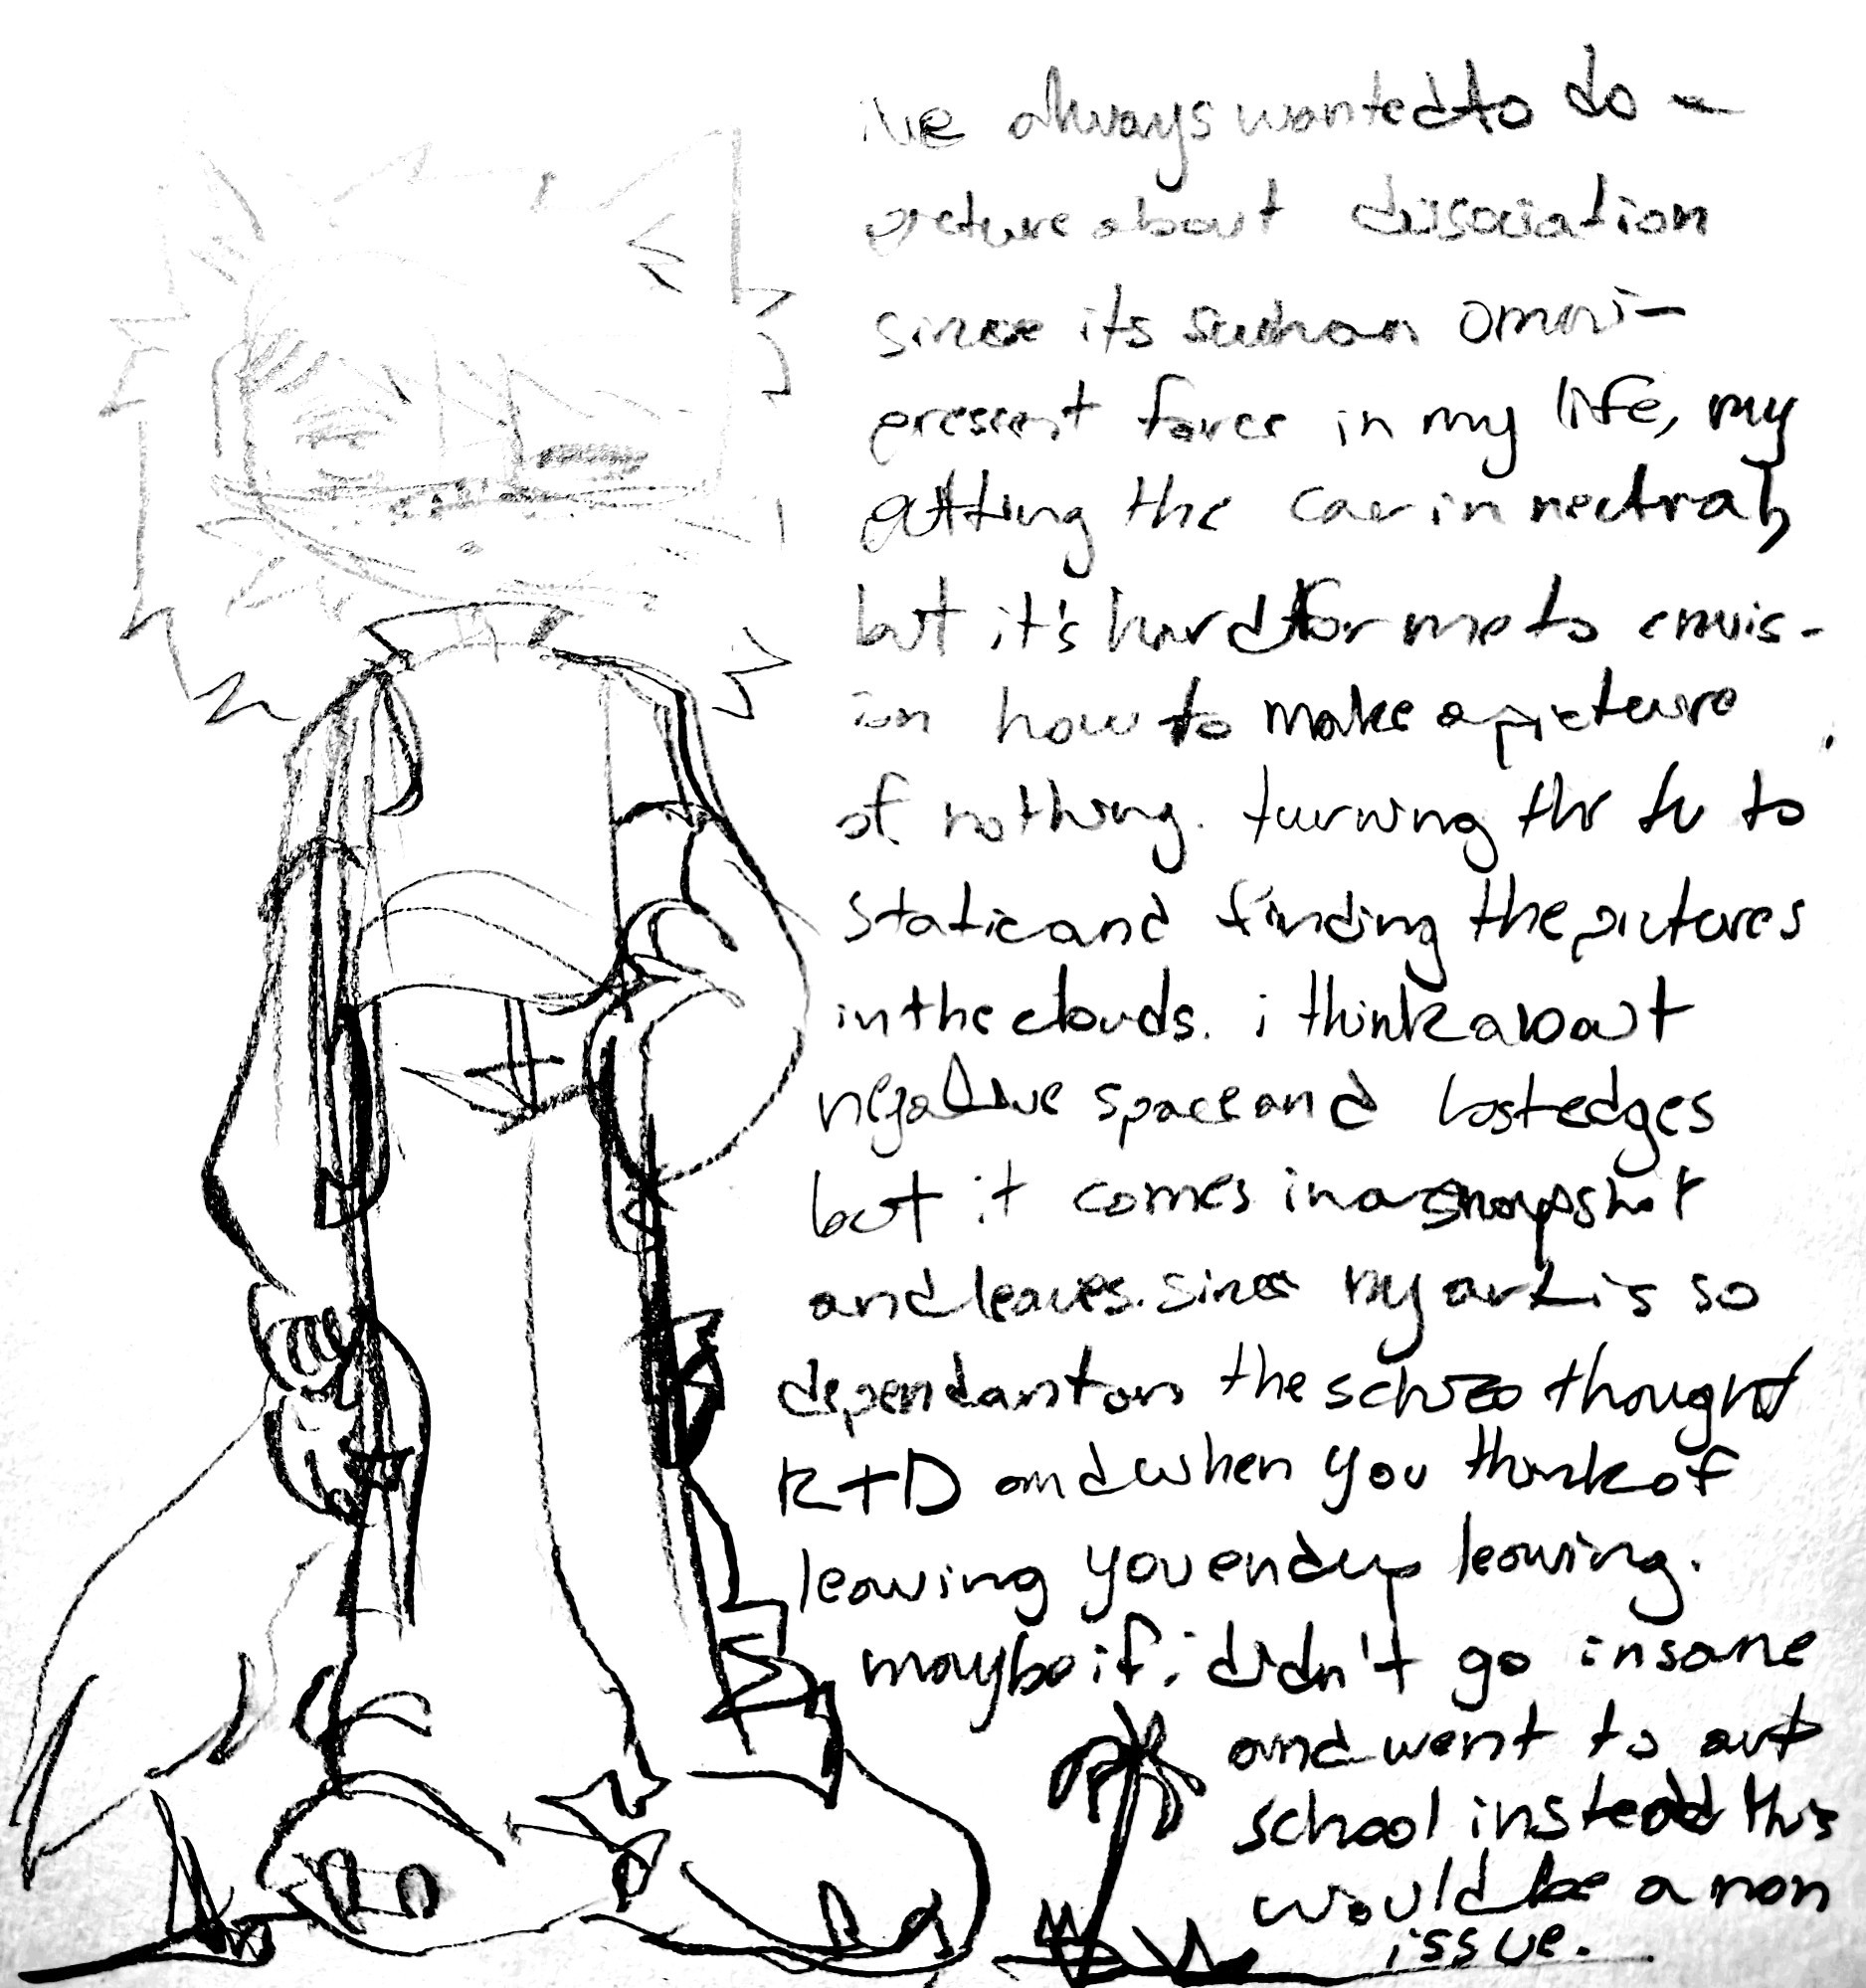 i've always wanted to do a
picture about disociation
since its such an omni-
present force in my life, my
putting the car in neutral,
but it's hard for me to envis-
ion how to make a picture
of nothing. turning the tv to
static and finding the pictures
in the clouds. i think about
negative space and lost edges
but it comes in a snapshot
and leaves. since my art is so
dependant on the schizo thought
R+D and when you think of
leaving you end up leaving.
maybe if i didn't go insane
and went to art
school instead this
would be a non
issue.